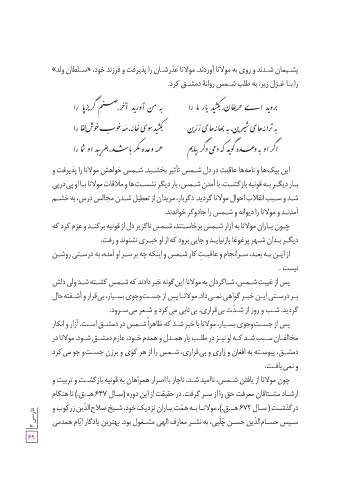 پشیمان شدند و روی به مولانا آوردند. مولانا عذرشان را پذیرفت و فرزند خود، «سلطان ولد»
را با غزل زیر، به طلب شمس روانهٔ دمشق کرد.
بروید ای حریفان، بکشید یار ما را
به من آورید آخر، صنم گریزپا را
به ترانه‌های شیرین، به بهانه‌های زرّین
بکشید سوی خانه، مه خوب خوش‌لقا را
اگر او به وعده گوید که دمی دگر بیایم
همه وعده مکر باشد، بفریبد او شما را
این پیک‌ها و نامه‌ها عاقبت در دل شمس تأثیر بخشید. شمس خواهش مولانا را پذیرفت و
بار دیگر به قونیه بازگشت. با آمدن شمس، بار دیگر نشست‌ها و ملاقات مولانا با او پی در پی
شد و سبب انقلاب احوال مولانا گردید. دگربار، مریدان از تعطیل شدن مجالس درس، به خشم
آمدند و مولانا را دیوانه و شمس را جادوگر خواندند.
چون یاران مولانا به آزار شمس برخاستند، شمس ناگزیر دل از قونیه برکند و عزم کرد که
دیگر بدان شهر پرغوغا بازنیاید و جایی برود که از او خبری نشنوند و رفت.
از این به بعد، سرانجام و عاقبت کار شمس و اینکه چه بر سر او آمده، به درستی روشن
نیست .
پس از غیبت شمس، شاگردان به مولانا این‌گونه خبر دادند که شمس کشته شد ولی دلش
بر درستی این خبر گواهی نمی‌داد. مولانا پس از جست‌وجوی بسیار، بی‌قرار و آشفته‌حال
گردید. شب و روز از شدّت بی‌قراری، بی‌تابی می کرد و شعر می‌سرود.
پس از جست‌وجوی بسیار، مولانا با خبر شد که ظاهراً شمس در دمشق است. آزار و انکار
مخالفان سبب شد که او نیز در طلب یار همدل و همدم خود، عازم دمشق شود. مولانا در
دمشق، پیوسته به افغان و زاری و بی‌قراری، شمس را از هر کوی و برزن جست‌و جو می کرد
و نمی‌یافت.
چون مولانا از یافتن شمس، ناامید شد، ناچار با اصرار همراهان به قونیه بازگشت و تربیت و
ارشاد مشتاقان معرفت حق را از سر گرفت. در حقیقت از این دوره (سال ۶۴۷ هـ.ق.) تا هنگام
درگذشت (سال ۶۷۲ هـ.ق.)، مولانا به همّت یاران نزدیک خود، شیخ صلاح‌الدّین زرکوب و
سپس حسام‌الدّین حسن چَلَبی، به نشر معارف الهی مشغول بود. بهترین یادگار ایّام همدمی
فارسی ۲
۶۹